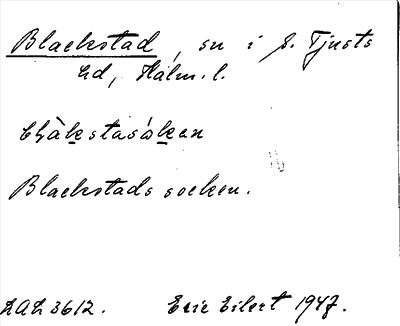 Blackstad, sn i S. Tjusts
hd, Kalm. l.
Blackstads socken.
LAL 3612. Eric Eilert 1947.